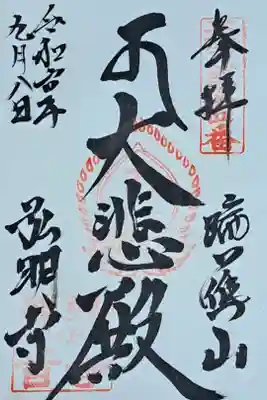 奉拝
瑞應山
大悲殿
弘明寺
令和六年
九月八日